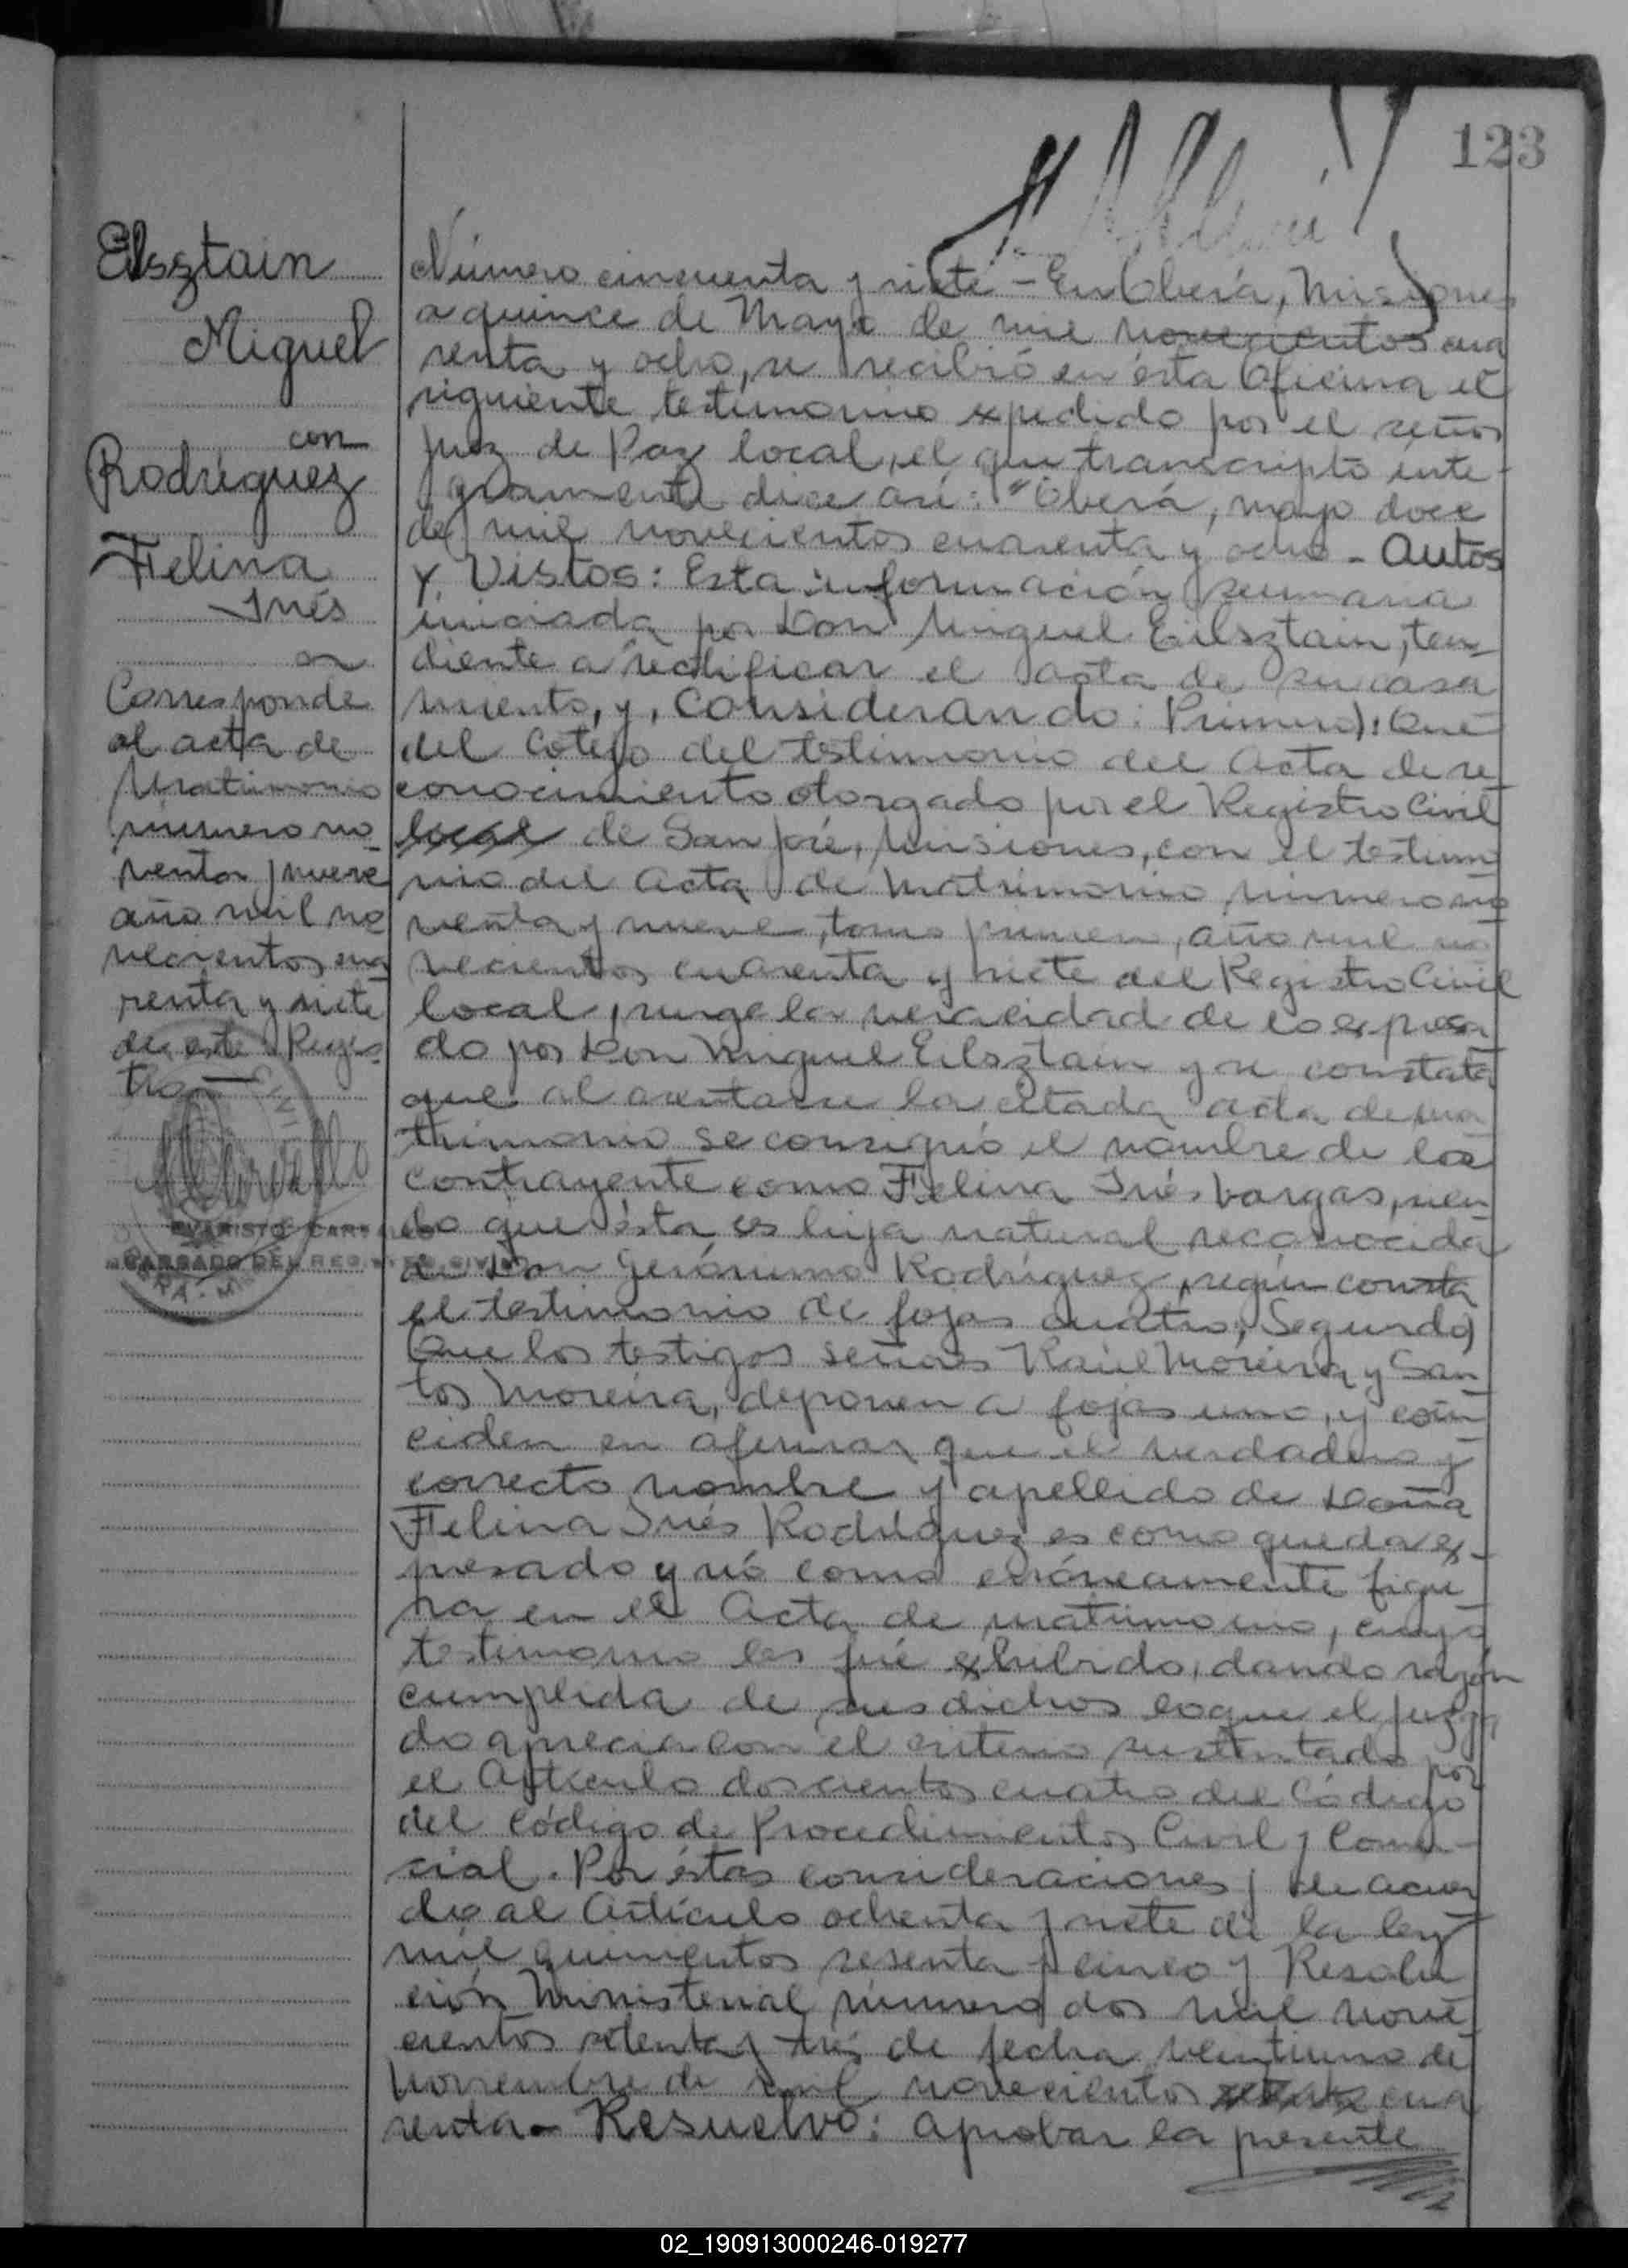 123
Eilsztain
Miguel
con
Rodríguez
Felina
Inés
Corresponde
al acta de
Matrimonio
número no
venta y nueve
año mil no
vecientos cua
renta y siete
de este Regis
tro
EVARISTO CAR
ENCARGADO DEL REGISTRO CIVIL
Número cincuenta y siete - En Oberá, Misiones
a quince de Mayo de mil novecientos cua
renta y ocho, se recibió en ésta Oficina el
siguiente testimonio expedido por el señor
Juez de Paz local, el que transcripto ínte-
gramente dice así: "Oberá, mayo doce
de mil novecientos cuarenta y ocho - Autos
y Vistos: Esta información sumaria
iniciada por Don Miguel Eilsztain, ten-
diente a rectificar el acta de su casa
miento, y, Considerando: Primero): Que
del cotejo del testimonio del Acta de re
conocimiento otorgado por el Registro Civil
local de San José, Misiones, con el testimo
nio del Acta de Matrimonio número no
venta y nueve, tomo primero, año mil no
vecientos cuarenta y siete del Registro Civil
local, surge la veracidad de lo expresa
do por Don Miguel Eilsztain y se constata
que al asentarse la citada acta de ma
trimonio se consignó el nombre de la
contrayente como Felina Inés Vargas, sien
do que ésta es hija natural reconocida
de Don Gerónimo Rodríguez, según consta
el testimonio de fojas cuatro; Segundo)
Que los testigos señores Raúl Moreira y San
tos Moreira, deponen a fojas uno, y coin
ciden en afirmar que el verdadero y
correcto nombre y apellido de Doña
Felina Inés Rodríguez es como queda ex-
presado y nó como erróneamente figu
ra en el Acta de matrimonio, cuyo
testimonio les fué exhibido, dando razón
cumplida de sus dichos lo que el juzga
do aprecia con el criterio sustentado por
el Artículo doscientos cuatro del Código
del Código de Procedimientos Civil y Comer-
cial. Por éstas consideraciones y de acuer
do al Artículo ochenta y siete de la ley
mil quinientos sesenta y cinco y Resolu
ción Ministerial número dos mil nove
cientos setenta y tres de fecha veintiuno de
Noviembre de mil novecientos cua
renta - Resuelvo: Aprobar la presente
02_190913000246-019277